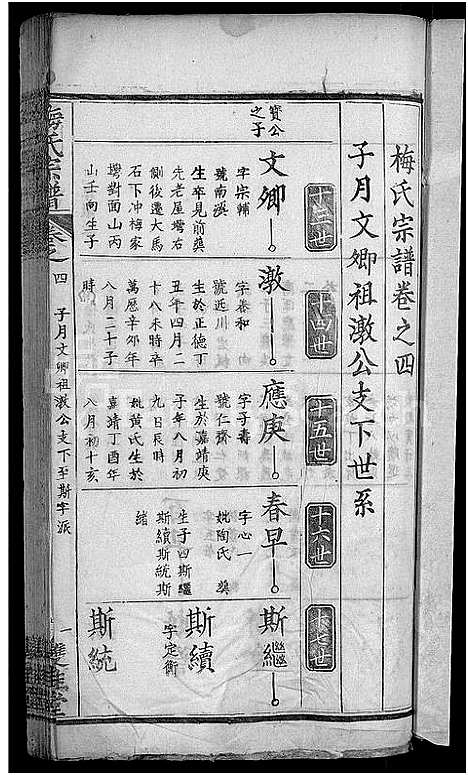 梅氏宗譜卷之四
子月文卿祖激公支下世系
十三世
十四世
十五世
十六世
十七世
寶公
之子
文卿
字宗輔
號南溪
生卒見前奠
先老屋塆右
側後遷大馬
石下冲樟家
塆對面山丙
山壬向生子
激
字泰和
號近川
生於正德丁
丑年四月二
十八未時卒
萬歷辛卯年
八月二十子
時
應庚
字子壽
號仁齋
生於嘉靖庚
子年八月初
九日辰時
妣黄氏生於
嘉靖丁酉年
八月初十亥
春早
字心一
妣陶氏 奠
生子四斯繼
斯續斯統斯
緒
斯繼
斯續
字定衡
斯統
梅氏宗譜
卷之四
子月文卿祖激公支下至斯字派
一